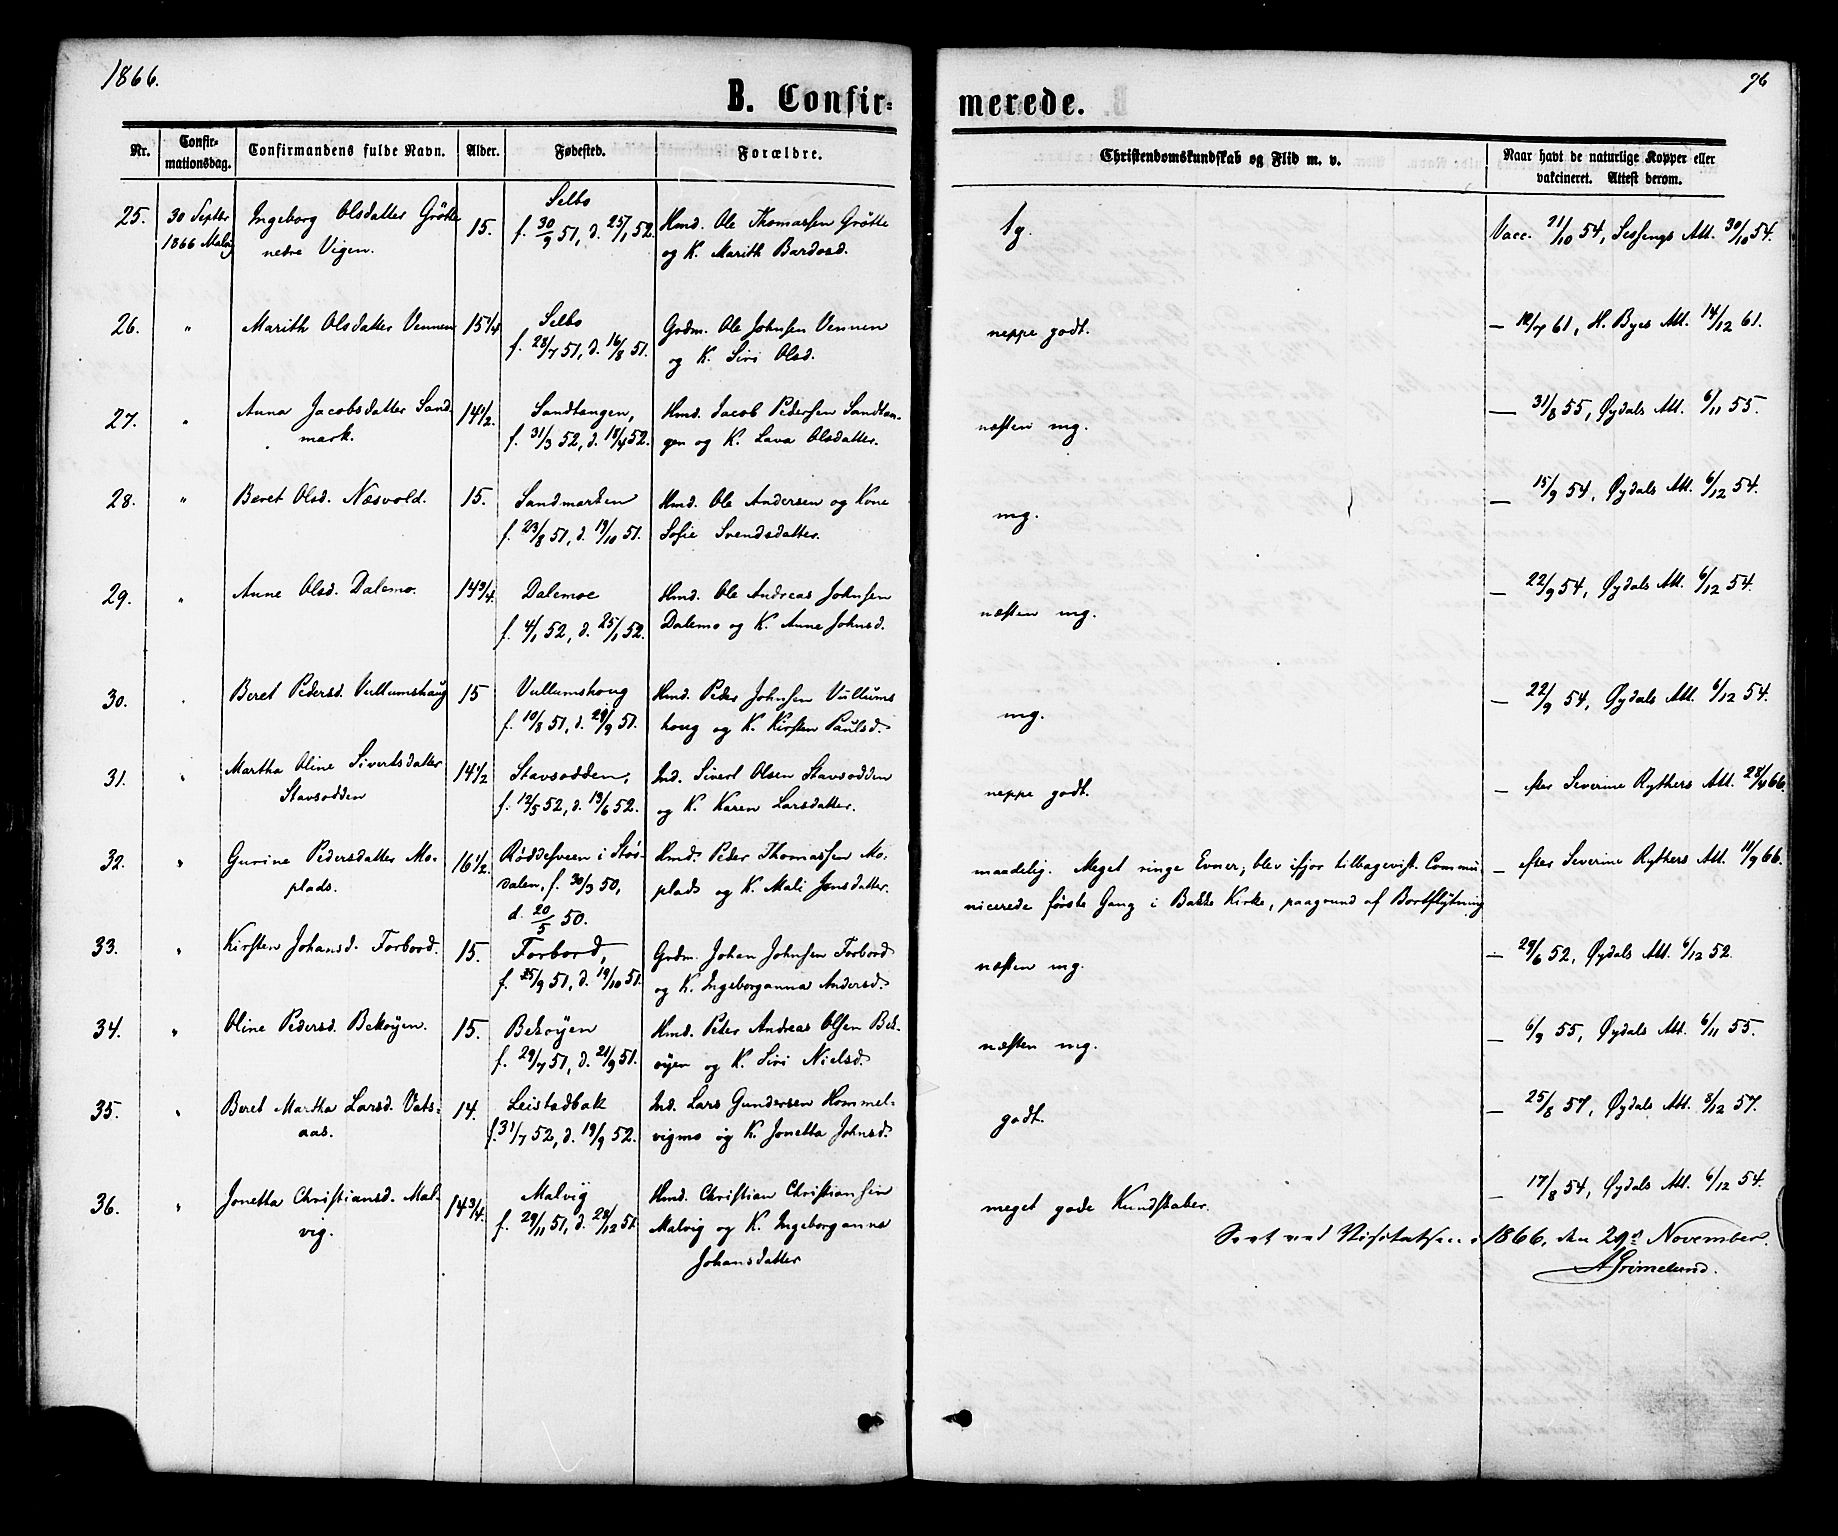 1866.
76
B. Confir-
merede.
Nr.
Confir-
mationsdag.
Confirmandens fulde Navn.
Alder.
Fødested.
Forældre.
Christendomskundskab og Flid m. v.
Naar havt de naturlige Kopper eller
vakcineret. Attest derom.
25. 30 Septbr Ingeborg Olsdatter Grötte 15. Selbo Hmd. Ole Thomassen Grötte
1866 Malvig nedre Vigen. f. 30/9 51, d. 25/1 52. og K. Marith Bardosd.
Vacc. 21/10 54, Sessengs Att. 30/10 54.
26. " Marith Olsdatter Vennen 15 1/4 Selbo Grdm. Ole Johnsen Vennen
f. 28/7 51, d. 16/8 51. og K. Siri Olsd.
neppe godt. — 12/7 61, H. Byes Att. 14/12 61.
27. " Anna Jacobsdatter Sand- 14 1/2. Sandtangen, Hmd. Jacob Pedersen Sandtan-
mark. f. 31/3 52, d. 18/4 52. gen og K. Lava Olsdatter.
næsten mg. — 31/8 55, Øydals Att. 6/11 55.
28. " Beret Olsd. Næsvold. 15. Sandmarken Hmd. Ole Andersen og Kone
f. 23/8 51, d. 19/10 51. Sofie Svendsdatter.
mg. — 15/9 54, Øydals Att. 6/12 54.
29. " Anne Olsd. Dalemo. 14 3/4. Dalemoe Hmd. Ole Andreas Johnsen
f. 4/1 52, d. 25/1 52. Dalemo og K. Anne Johnsd.
næsten mg. — 22/9 54, Øydals Att. 6/12 54.
30. " Beret Pedersd. Vullumshaug 15 Vullumshoug Hmd. Peder Johnsen Vullums
f. 10/8 51, d. 29/9 51. houg og K. Kirsten Paulsd.
mg. — 22/9 54, Øydals Att. 6/12 54.
31. " Martha Oline Sivertsdatter 14 1/2 Stavsodden, Ind. Sivert Olsen Stavsodden
Stavsodden f. 12/5 52, d. 19/6 52. og K. Karen Larsdatter.
neppe godt. — efter Severine Rythers Att. 28/4 66.
32. " Gurine Pedersdatter Mo- 16 1/2. Røddesveen i Stør- Hmd. Peder Thomassen Mo-
plads. dalen, f. 30/3 50, plads og K. Mali Jonsdatter.
d. 20/5 50.
maadelig. Meget ringe Evner; blev ifjor tilbagevist. Commu- — efter Severine Rythers Att. 11/9 66.
nicerede første Gang i Bakke Kirke, paagrund af Bortflytning
33. " Kirsten Johansd. Forbord. 15. Forbord, Grdm. Johan Johnsen Forbord
f. 25/9 51, d. 19/10 51. og K. Ingeborganna Andersd.
næsten mg. — 29/6 52, Øydals Att. 6/12 52.
34. " Oline Pedersd. Bekøyen. 15. Bekøyen Hmd. Peter Andreas Olsen Bek-
f. 29/7 51, d. 21/9 51. øyen og K. Siri Nielsd.
næsten mg. — 6/9 55, Øydals Att. 6/11 55.
35. " Beret Martha Larsd. Vats- 14. Leistadbak Ind. Lars Gundersen Hommel-
aas. f. 31/7 52, d. 19/9 52. vigmo og K. Jonetta Johnsd.
godt. — 25/8 57, Øydals Att. 8/12 57.
36. " Jonetta Christiansd. Mal- 14 3/4. Malvig Hmd. Christian Christiansen
vig. f. 29/11 51, d. 28/12 51. Malvig og K. Ingeborganna
Johansdatter
meget gode Kundskaber. — 17/8 54, Øydals Att. 6/12 54.
Seet ved Visitatsen i 1866, den 29de November.
A Grimelund.